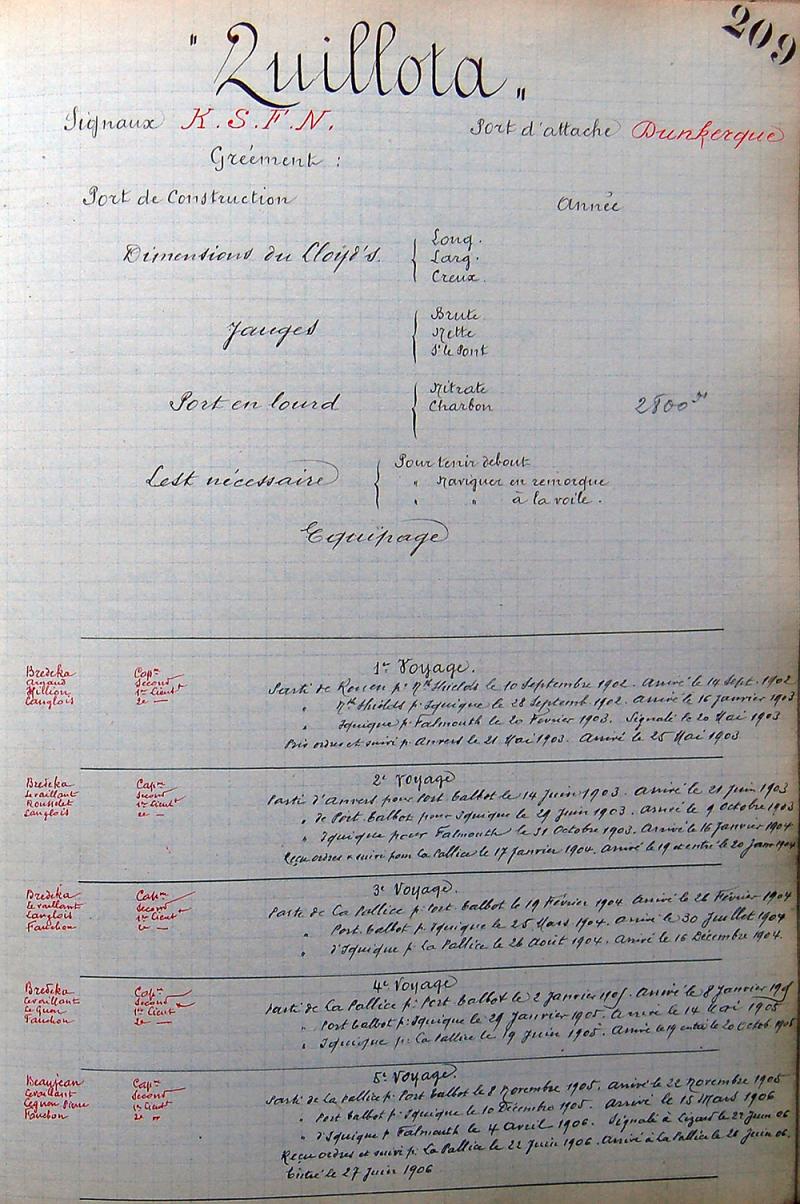 209
"Quillota"
Signaux K.S.F.N. Port d'attache Dunkerque
Gréement :
Port de Construction Année
Dimensions du Lloyd's. Long.
Larg.
Creux.
Jauges Brute
Nette
S/s le Pont
Port en lourd Nitrate
Charbon 2800
Lest nécessaire Pour tenir debout
" Naviguer en remorque
" " à la voile.
Equipage
1er Voyage.
Bredeka Capne
Second
Million 1er Lieut
Langlois 2e —
Parti de Rouen pr Nth Shields le 10 Septembre 1902. Arrivé le 14 Sept. 1902
" Nth Shields pr Iquique le 28 Septemb. 1902. Arrivé le 16 Janvier 1903
" Iquique p. Falmouth le 20 Février 1903. Signalé le 20 Mai 1903
Pris ordres et suivi p. Anvers le 21 Mai 1903. Arrivé le 25 Mai 1903
2e Voyage
Bredeka Capne
Levaillant Second
Rousselet 1er Lieut
Langlois 2e —
Parti d'Anvers pour Port Talbot le 14 Juin 1903. Arrivé le 21 Juin 1903
" de Port Talbot pour Iquique le 29 Juin 1903. Arrivé le 9 Octobre 1903
" Iquique pour Falmouth le 31 Octobre 1903. Arrivé le 16 Janvier 1904
Reçu ordres & suivi pour La Pallice le 17 Janvier 1904. Arrivé le 19 et entré le 20 Janv 1904
3e Voyage.
Bredeka Capne
Levaillant Second
Langlois 1er Lieut
Fauchon 2e —
Parti de La Pallice p. Port Talbot le 19 Février 1904 Arrivé le 26 Février 1904
" Port Talbot p. Iquique le 25 Mars 1904. Arrivé le 30 Juillet 1904
" d'Iquique p. La Pallice le 26 Août 1904. Arrivé le 16 Décembre 1904.
4e Voyage
Bredeka Capne
Levaillant Second
Le Guen 1er Lieut
Fauchon 2e —
Parti de La Pallice p. Port Talbot le 2 Janvier 1905. Arrivé le 8 Janvier 1905
" Port Talbot p. Iquique le 29 Janvier 1905. Arrivé le 14 Mai 1905
" Iquique p. La Pallice le 19 Juin 1905. Arrivé le 19 entré le 20 Octob 1905
5e Voyage.
Beaujean Capne
Levaillant Second
1er Lieut
Fauchon 2e "
Parti de La Pallice p. Port Talbot le 8 Novembre 1905. Arrivé le 22 Novembre 1905
" Port Talbot p. Iquique le 10 Décembre 1905. Arrivé le 15 Mars 1906
" d'Iquique p. Falmouth le 4 Avril 1906. Signalé à Lizard le 22 Juin 06
Reçu ordres et suivi p. La Pallice le 22 Juin 1906. Arrivé à La Pallice le 26 Juin 06.
Entré le 27 Juin 1906